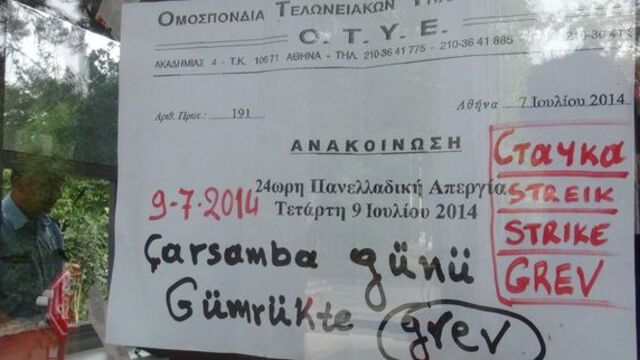 ΟΜΟΣΠΟΝΔΙΑ ΤΕΛΩΝΕΙΑΚΩΝ
Ο. Τ. Υ. Ε.
ΑΚΑΔΗΜΙΑΣ 4 - Τ.Κ. 106 71 ΑΘΗΝΑ - ΤΗΛ. 210-36 41 775 - 210-36 41 885
Αριθ. Πρωτ.: 191
Αθήνα 7 Ιουλίου 2014
ΑΝΑΚΟΙΝΩΣΗ
24ωρη Πανελλαδική Απεργία
Τετάρτη 9 Ιουλίου 2014
9-7.2014
Стачка
STREIK
STRIKE
GREV
Çarsamba günü
Gümrükte grev